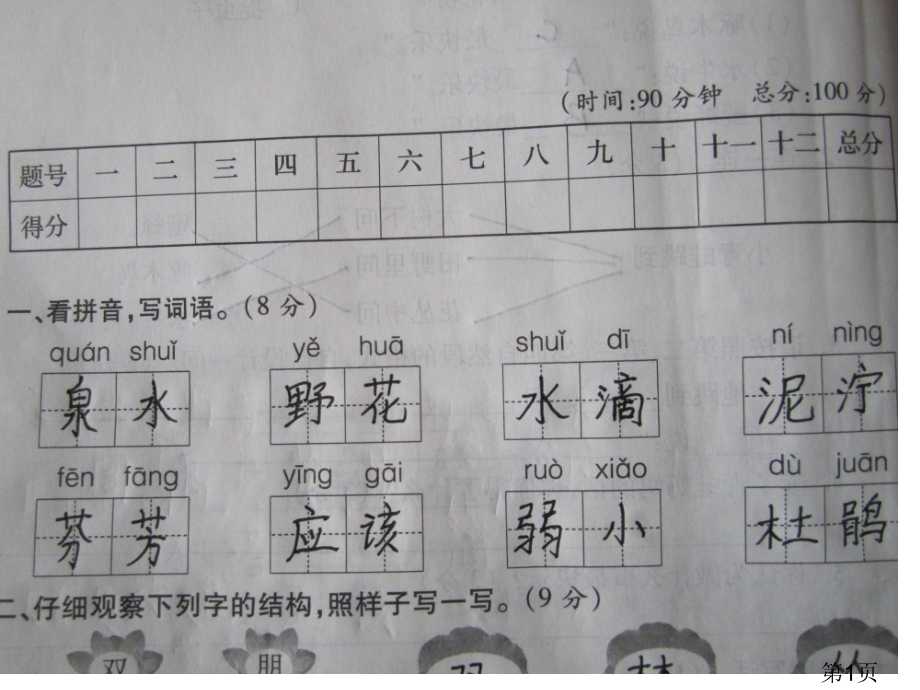 (时间:90分钟 总分:100分)
题号 一 二 三 四 五 六 七 八 九 十 十一 十二 总分
得分
一、看拼音,写词语。(8分)
quán shuǐ yě huā shuǐ dī ní nìng
泉水 野花 水滴 泥泞
fēn fāng yīng gāi ruò xiǎo dù juān
芬芳 应该 弱小 杜鹃
二、仔细观察下列字的结构,照样子写一写。(9分)
双 朋
第1页